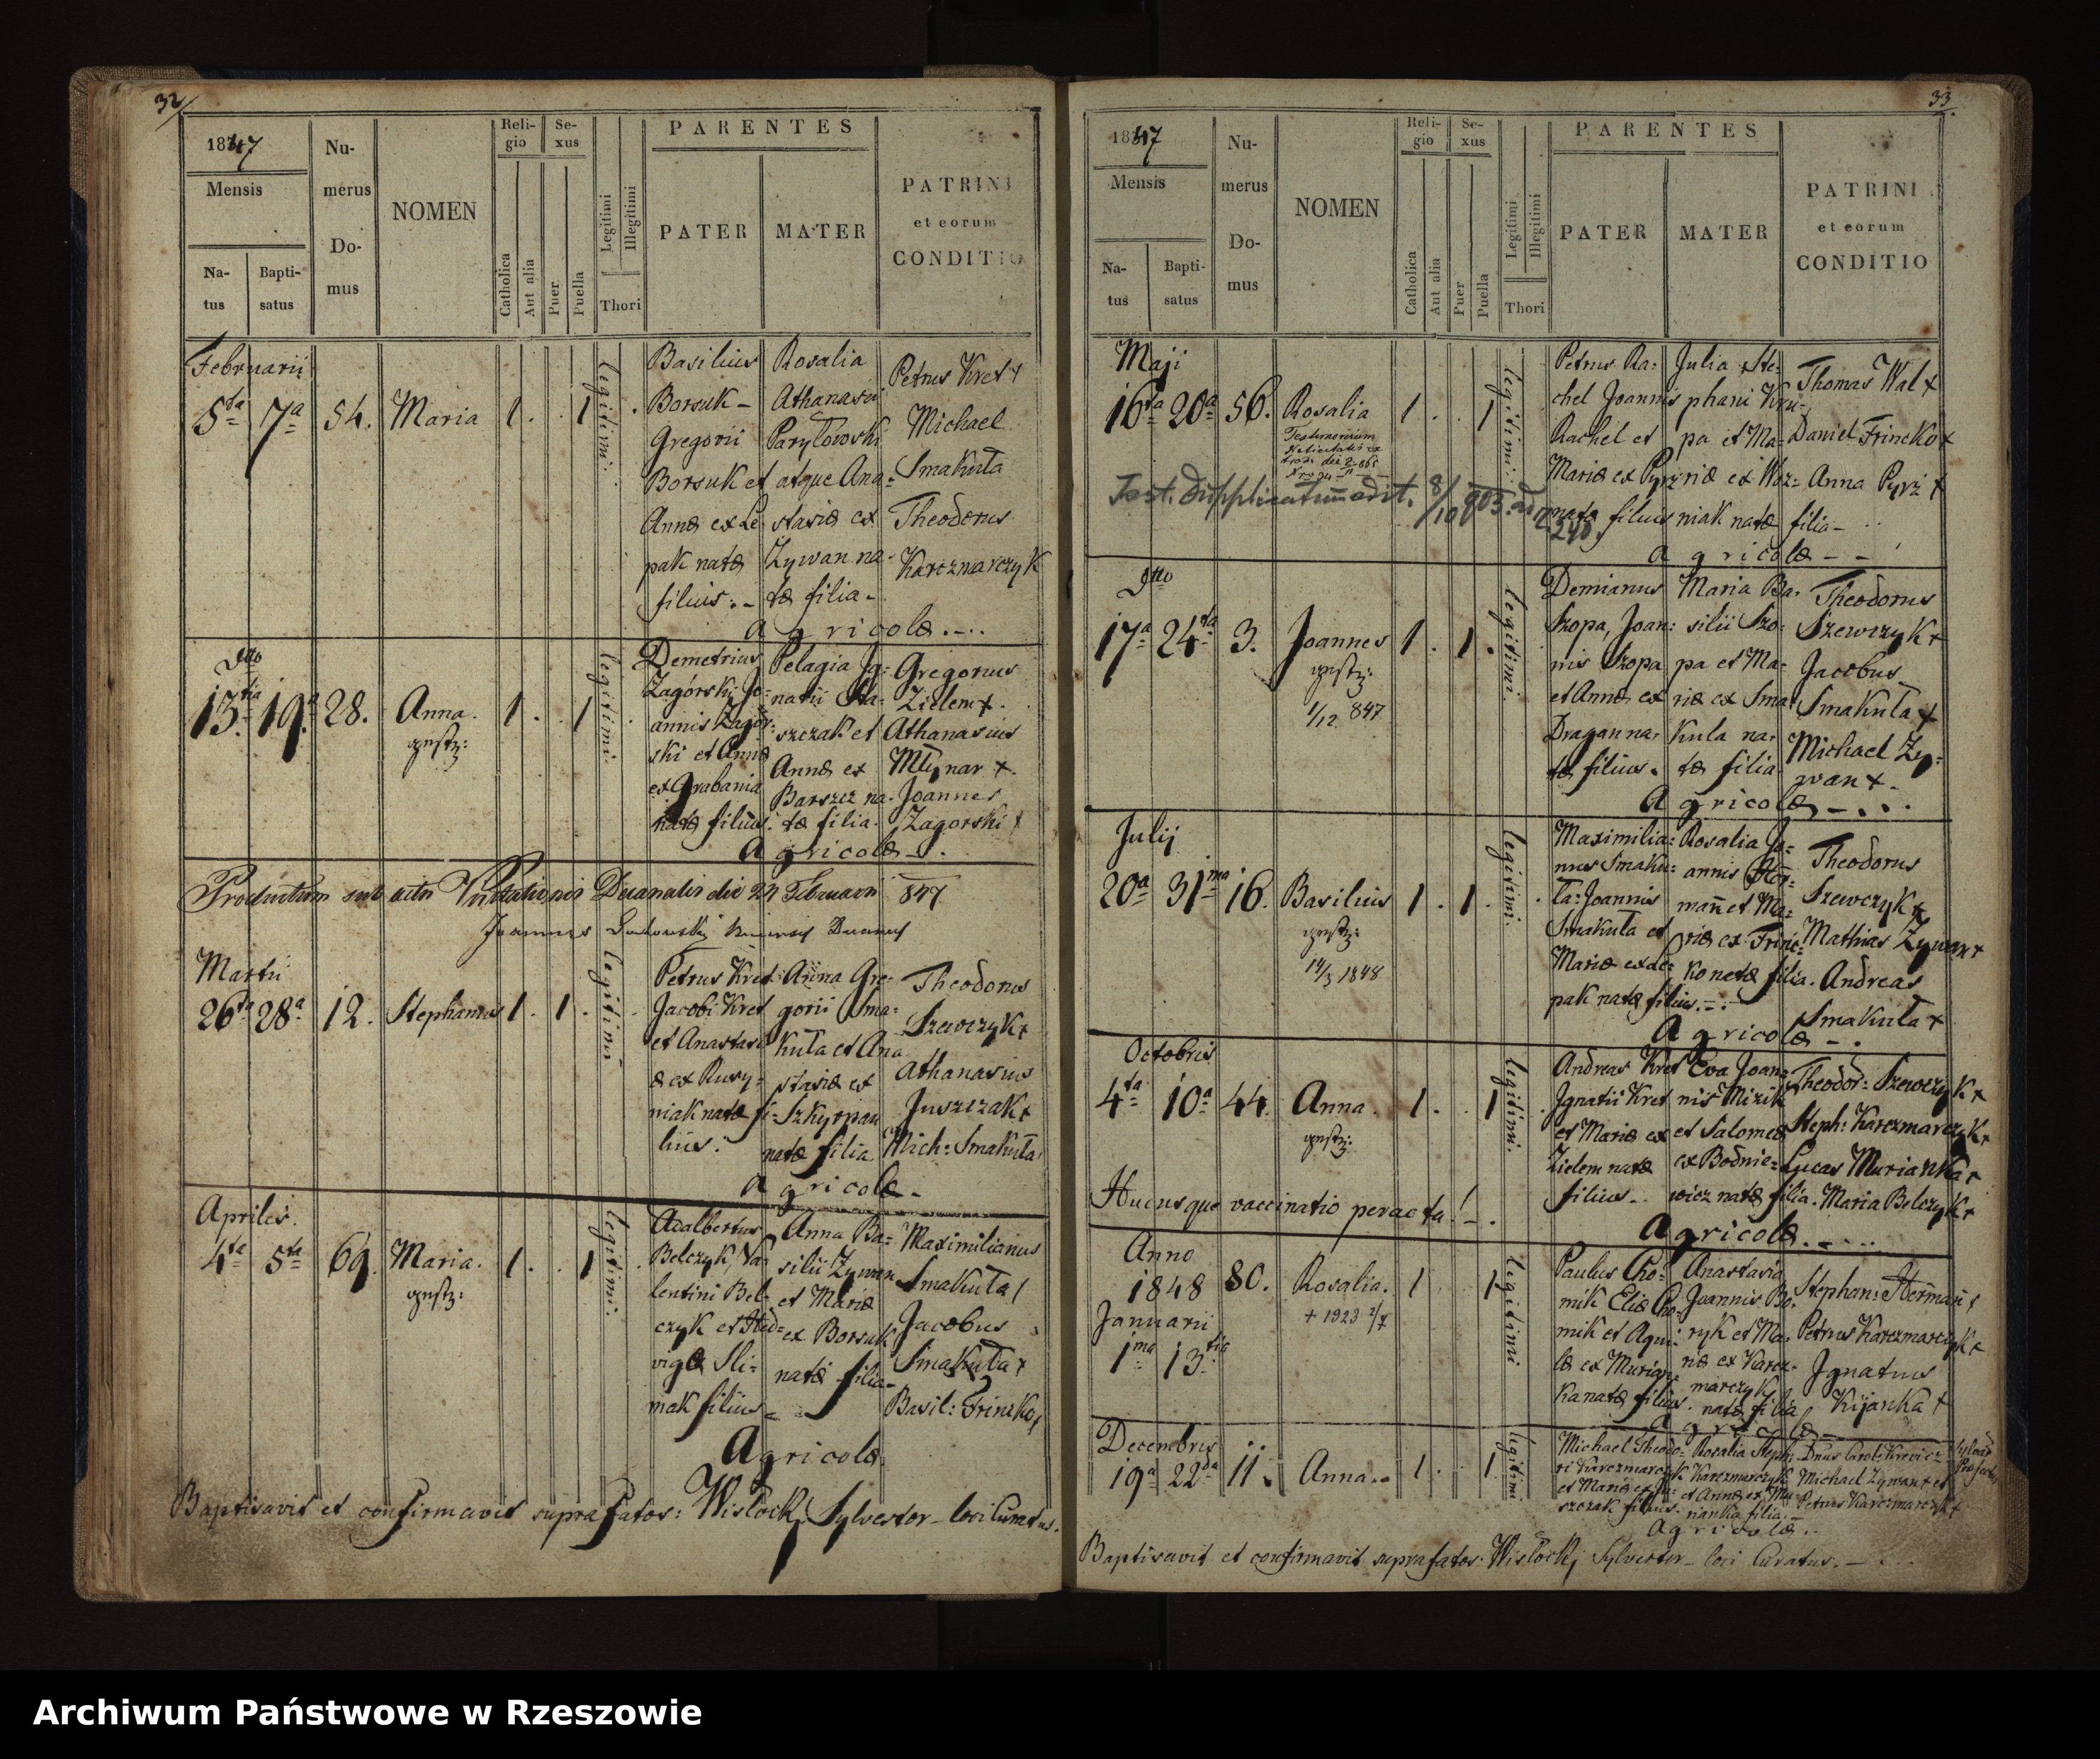 32
1847
Mensis
Na-
tus
Bapti-
satus
Nu-
merus
Do-
mus
NOMEN
Reli-
gio
Catholica
Aut alia
Se-
xus
Puer
Puella
Legitimi
Illegitimi
Thori
PARENTES
PATER
MATER
PATRINI
et eorum
CONDITIO
Februarii
5ta 7a 54. Maria 1 . 1
legitimi.
Basilius
Borsuk -
Gregorii
Borsuk et
Annæ ex Le-
pak natæ
filius. -
Rosalia
Athanasii
Paryłowski
atque Ana-
stasiæ ex
Zywan na-
tæ filia -
Petrus Kret +
Michael
Smakuła
Theodorus
Karczmarczyk
agricolæ
Dtto
13tia 19a 28. Anna. 1 . 1
legitimi.
Demetrius
Zagórski Jo-
annis Zagór-
ski et Annæ
ex Grabania
natæ filius.
Pelagia Ig-
natii Sta-
szczak et
Annæ ex
Barszcz na-
tæ filia.
Gregorius
Zielem +.
Athanasius
Młynar +.
Joannes
Zagorski +
agricolæ
Productum sub actu Visitationis Decanalis die 24 Februarii 847
Joannes
Martii
26ta 28a 12. Stephanus 1 . 1 .
legitimi
Petrus Kret
Jacobi Kret
et Anastasi-
æ ex Rusy-
niak natæ fi-
lius.
Anna Gre-
gorii Sma-
kuła et Ana
stasiæ ex
Szkyrpan
natæ filia
Theodorus
Szewczyk +
Athanasius
Juszczak +
Mich: Smakuła
agricolæ
Aprilis.
4ta 5ta 69. Maria. 1 . 1
legitimi.
Adalbertus
Belczyk, Va-
lentini Bel-
czyk et Hed-
vigæ Sli-
mak filius
Anna Ba-
silii Zywan
et Mariæ
ex Borsuk
natæ filia -
Maximilianus
Smakuła
Jacobus
Smakuła +
Basil: Frinćko +
Agricolæ
Baptisavit et confirmavit suprafatos: Wisłocki Sylvester - loci Curatus.
33
1847
Mensis
Na-
tus
Bapti-
satus
Nu-
merus
Do-
mus
NOMEN
Reli-
gio
Catholica
Aut alia
Se-
xus
Puer
Puella
Legitimi
Illegitimi
Thori
PARENTES
PATER
MATER
PATRINI
et eorum
CONDITIO
Maji
16ta 20a 56. Rosalia 1 . 1
Testimonium
legitimi.
Test. dupplicatum edit. 8/10 903
Petrus Ra-
chel Joannis
Rachel et
Mariæ ex Pyrz
natæ filius
Julia Ste-
phani Kru-
pa et Ma-
riæ ex Woz-
niak natæ filia -
Thomas Wal +
Daniel Frincko +
Anna Pyrz +
agricolæ - -
Dtto
17a 24ta 3. Joannes 1 . 1 .
1/12 847
legitimi.
Demianus
Szopa, Joan-
nis Szopa
et Annæ ex
Dragan na-
tæ filius.
Maria Ba-
silii Szo-
pa et Ma-
riæ ex Sma-
kula na-
tæ filia
Theodorus
Szewczyk +
Jacobus
Smakuła +
Michael Zy-
wan +.
agricolæ - . . .
Julij
20a 31ma 16. Basilius 1 . 1 .
14/3 1848
legitimi.
Maximilia-
nus Smaku-
ła: Joannis
Smakuła et
Mariæ ex Le-
pak natæ filius. -
Rosalia Jo-
annis Her-
mañ et Ma-
riæ ex Frinć-
ko natæ filia.
Theodorus
Szewczyk +
Mathias Zywan +
Andreas
Smakuła +
agricolæ - .
Octobris
4ta 10a 44. Anna. 1 . 1
legitimi.
Andreas Kret
Ignatii Kret
et Mariæ ex
Zielem natæ
filius. -
Eva Joan-
nis Mizik
et Salomeæ
ex Bodnie-
wicz natæ filia.
Theodor: Szewczyk +
Steph: Karczmarczyk +
Lucas Murianka +
Maria Belczyk +
Hucusque vaccinatio peracta! - .
agricolæ. -
Anno
1848 80. Rosalia. 1 . 1
Januarii + 1923 2/7
1ma 13tia
legitimi
Paulus Cho-
mik Eliæ Cho-
mik et Aqui-
læ ex Murian-
ka natæ filius.
Anastasia
Joannis Bo-
ryk et Ma-
riæ ex Karcz-
marczyk
natæ filia
Stephan: Hermañ +
Petrus Karczmarczyk +
Ignatius
Kijanka +
agricolæ
Decembris
19a 22da 11. Anna. 1 . 1
legitimi
Michael Theodo-
ri Karczmarczyk
szczak filius.
Rosalia Steph:
Karczmarczyk
et Annæ ex Mu-
rianka filia. -
Michael Zywan + et
Petrus Karczmarczyk +
agricolæ.
Baptisavit et confirmavit suprafatos: Wisłockj Sylvester - loci Curatus. -
Archiwum Państwowe w Rzeszowie